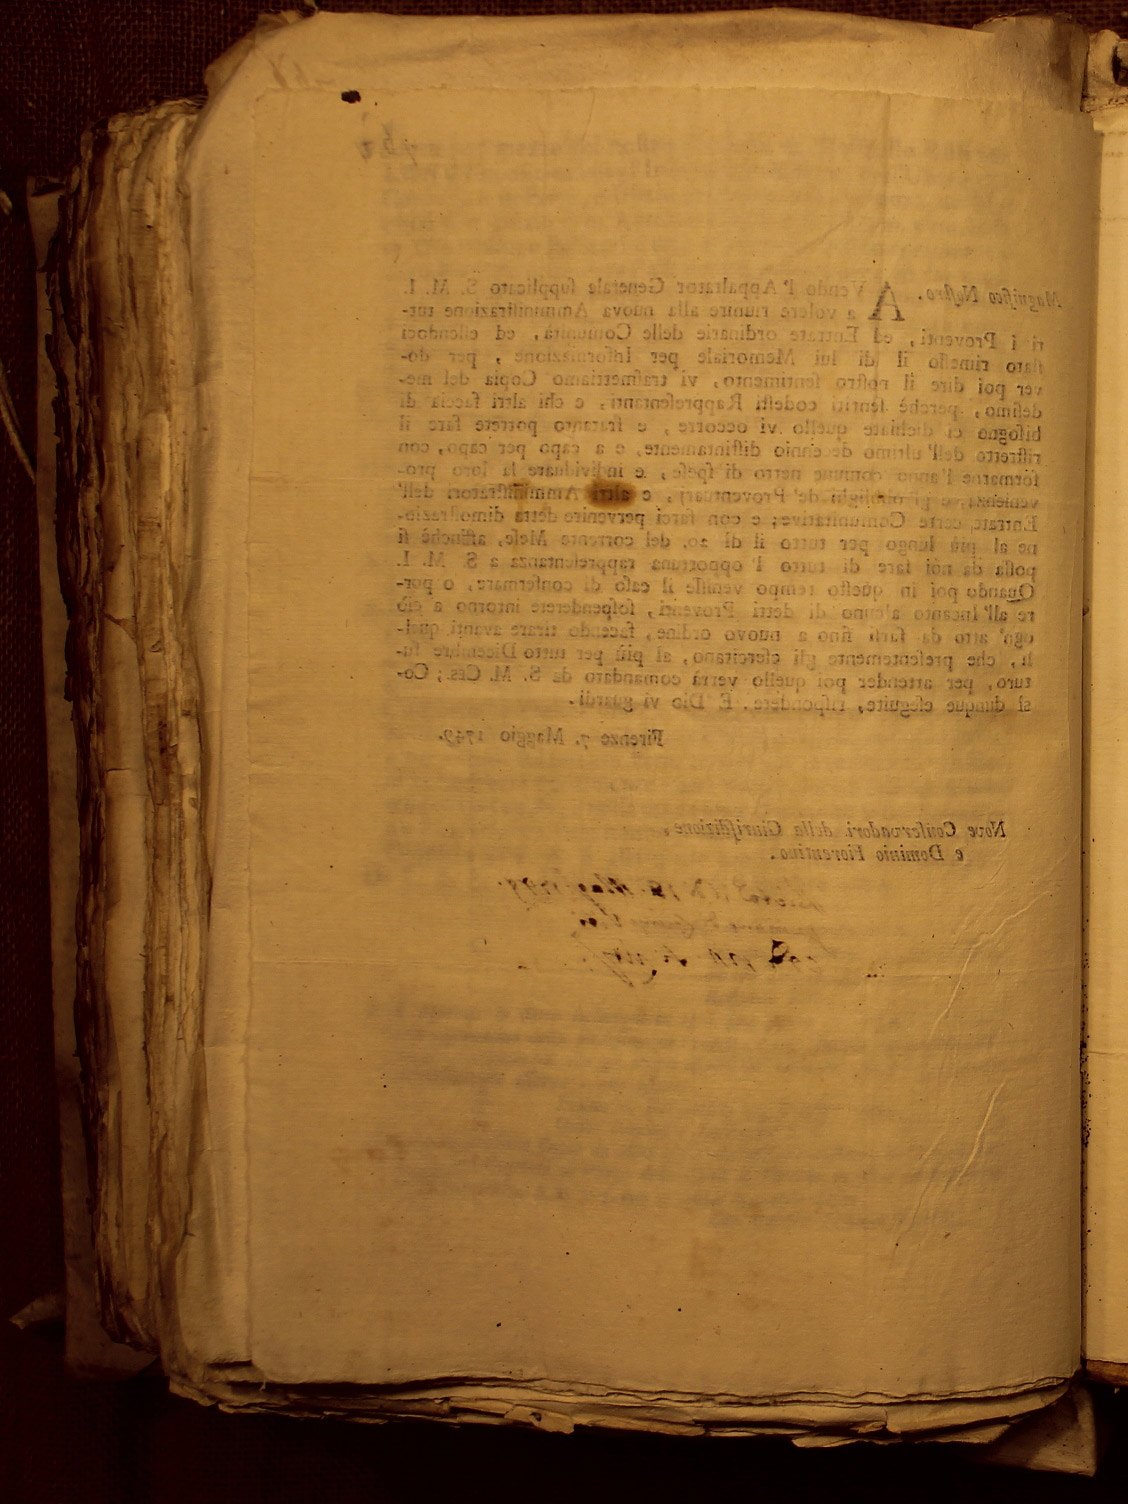 Magnifico Nostro.
AVendo l' Appaltator Generale ſupplicato S. M. I.
a volere riunire alla nuova Amminiſtrazione tut-
ti i Proventi, ed Entrate ordinarie delle Comunità, ed eſſendoci
ſtato rimeſſo il di lui Memoriale per Informazione, per do-
ver poi dire il noſtro ſentimento, vi traſmettiamo Copia del me-
deſimo, perchè ſentiti codeſti Rappreſentanti, e chi altri faccia di
biſogno ci dichiate quello vi occorre, e frattanto potrete fare il
riſtretto dell' ultimo decennio diſtintamente, e a capo per capo, con
formarne l'anno comune netto di ſpeſe, e individuare la loro pro-
venienza, e gl'obblighi de' Proventuarj, e altri Amminiſtratori dell'
Entrate certe Comunitative; e con farci pervenire detta dimoſtrazio-
ne al più lungo per tutto il dì 20. del corrente Meſe, affinchè ſi
poſſa da noi fare di tutto l' opportuna rappreſentanza a S. M. I.
Quando poi in queſto tempo veniſſe il caſo di confermare, o pur-
re all' Incanto alcuno di detti Proventi, ſoſpenderete intorno a ciò
ogn' atto da farſi fino a nuovo ordine, facendo tirare avanti quel-
li, che preſentemente gli eſercitano, al più per tutto Dicembre fu-
turo, per attender poi quello verrà comandato da S. M. Ceſ.; Co-
sì dunque eſeguite, riſpondete. E Dio vi guardi.
Firenze 7. Maggio 1749.
Nove Conſervadori della Giuriſdizione,
e Dominio Fiorentino.